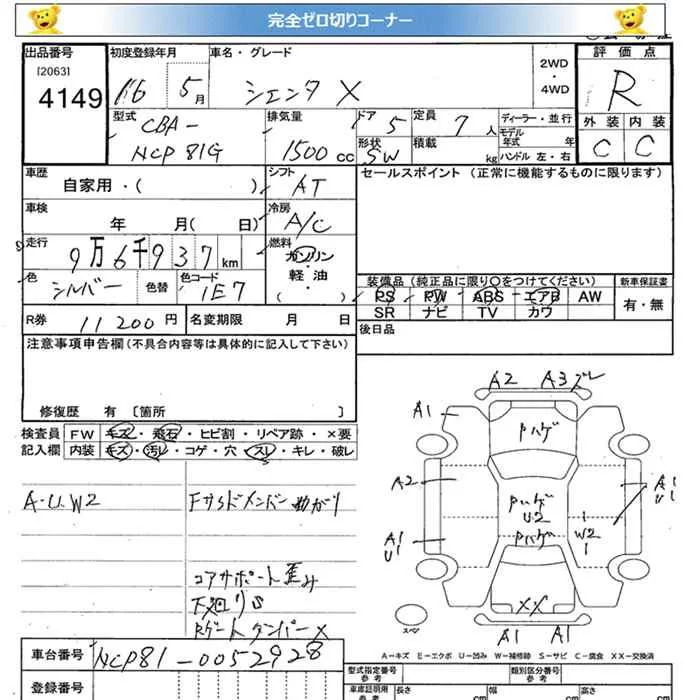 完全ゼロ切りコーナー
出品番号 初度登録年月 車名・グレード 評価点
[2063]
4149 16 5月 シエンタ X 2WD・4WD R
型式 排気量 ドア 定員 ディーラー・並行 外装 内装
CBA-
NCP81G 1500cc 5 7人 モデル年式 年 C C
形状 積載
SW kg ハンドル 左・右
車歴 シフト セールスポイント (正常に機能するものに限ります)
自家用・( ) AT
車検 冷房
年 月( 日) A/C
走行 燃料
9万6千937km ガソリン
軽・油
・( )
色 色替 色コード
シルバー 1E7
装備品(純正品に限り○をつけてください) 新車保証書
PS PW ABS エアB AW 有・無
SR ナビ TV カワ
R券 11200円 名変期限 月 日 後日品
注意事項申告欄(不具合内容等は具体的に記入して下さい)
修復歴 有 [箇所 ]
検査員 FW キズ・飛石・ヒビ割・リペア跡・×要
記入欄 内装 キズ・汚レ・コゲ・穴・スレ・キレ・破レ
A・U・W2 Fサイドメンバー曲がり
コアサポート歪み
下廻りS
Rゲートダンパー×
A2 A3ズレ
A1
Pハゲ
A2 A1
U1
Pハゲ
U2
Pハゲ
A1
U1
W2
XX
A1 A1
スペア
A-キズ E-エクボ U-凹み W-補修跡 S-サビ C-腐食 XX-交換済
車台番号 NCP81-0052928
型式指定番号 類別区分番号
参考 参考
登録番号
車庫証明用 長さ 幅 高さ
参考 cm cm cm